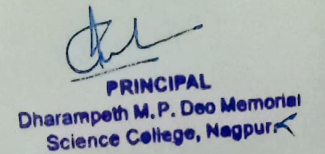 PRINCIPAL
Dharampeth M.P. Deo Memorial
Science College, Nagpur.